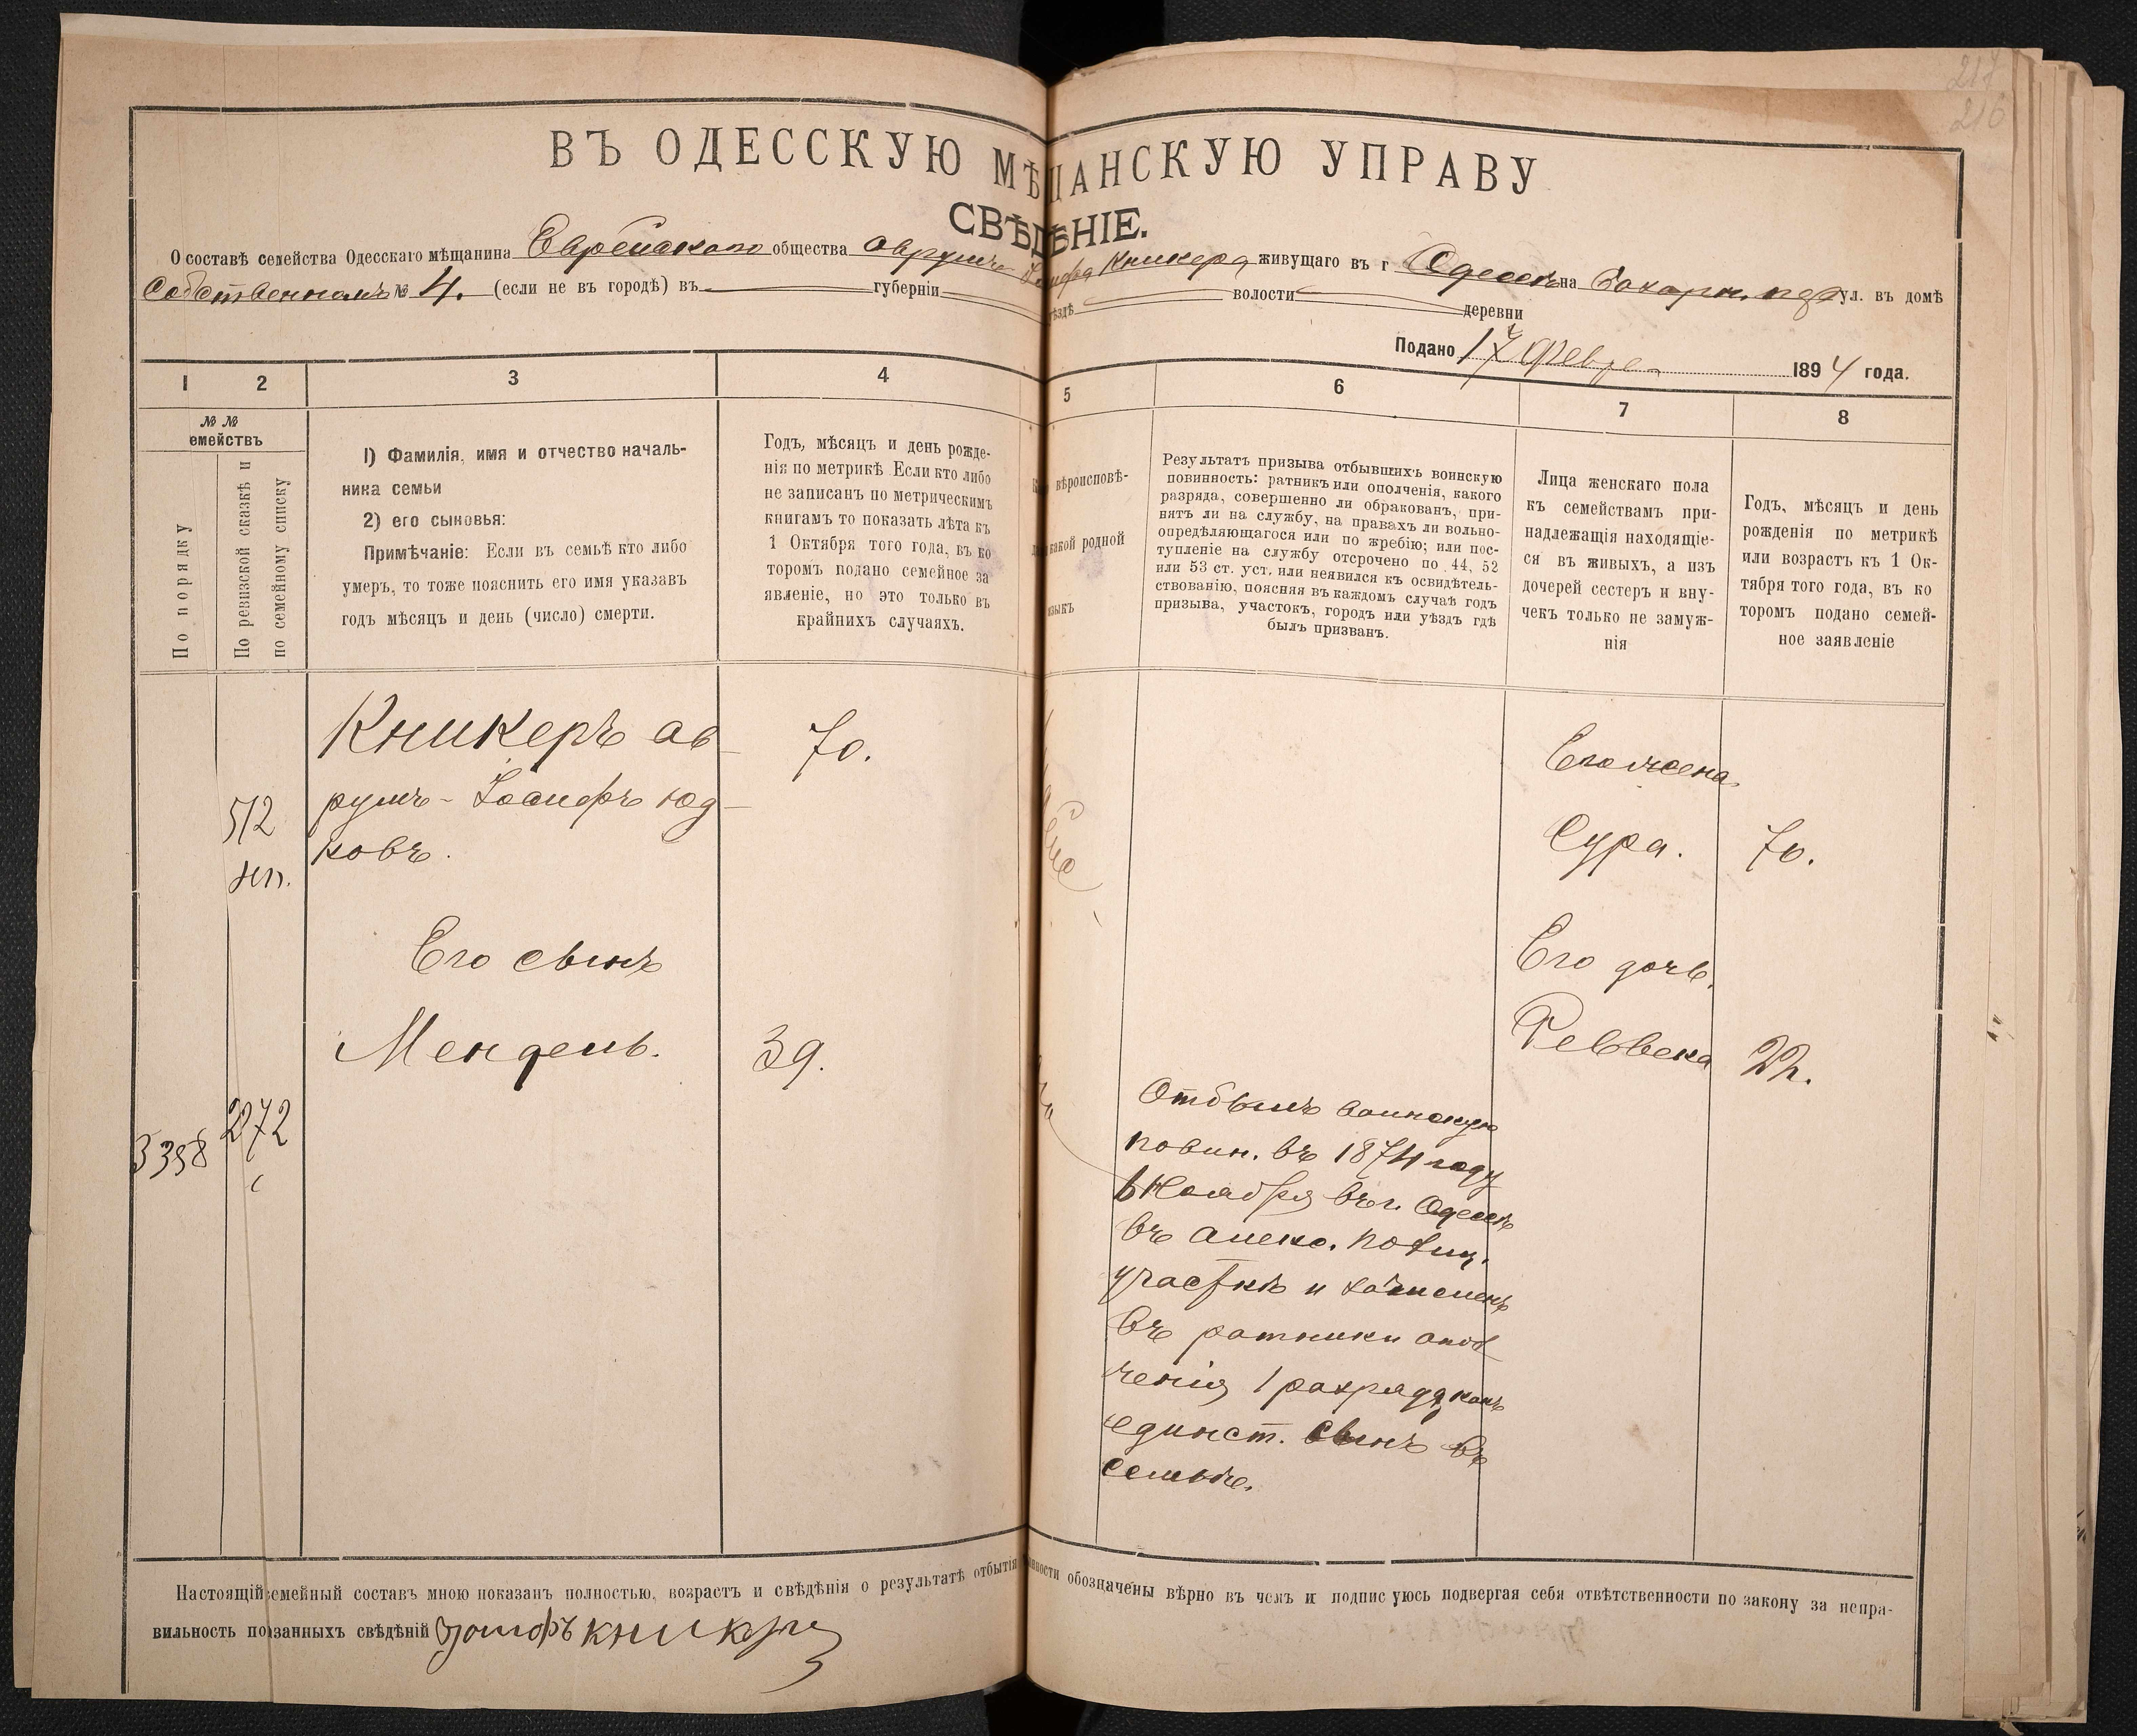 217
216
ВЪ ОДЕССКУЮ МѢЩАНСКУЮ УПРАВУ
СВѢДѢНІЕ.
О составѣ семейства Одесскаго мѣщанина Еврейскаго общества Аврумъ Іосифа Кникера живущаго въ г Одессѣ на ул. въ домѣ
Собственномъ № 4. (если не въ городѣ) въ губерніи ѣздѣ волости деревни
Подано 17 Февр 1894 года.
1 2 3 4 5 6 7 8
№ №
емействъ
По порядку
По ревизской сказкѣ и
по семейному списку
1) Фамилія, имя и отчество началь-
ника семьи
2) его сыновья:
Примѣчаніе: Если въ семьѣ кто либо
умеръ, то тоже пояснить его имя указавъ
годъ мѣсяцъ и день (число) смерти.
Годъ, мѣсяцъ и день рожде-
нія по метрикѣ Если кто либо
не записанъ по метрическимъ
книгамъ то показать лѣта къ
1 Октября того года, въ ко
торомъ подано семейное за
явленіе, но это только въ
крайнихъ случаяхъ.
вѣроисповѣ-
какой родной
языкъ
Результатъ призыва отбывшихъ воинскую
повинность: ратникъ или ополченія, какого
разряда, совершенно ли обракованъ, при-
нятъ ли на службу, на правахъ ли вольно-
опредѣляющагося или по жребію; или пос-
тупленіе на службу отсрочено по 44, 52
или 53 ст. уст. или неявился къ освидѣтель-
ствованію, поясняя въ каждомъ случаѣ годъ
призыва, участокъ, городъ или уѣздъ гдѣ
былъ призванъ.
Лица женскаго пола
къ семействамъ при-
надлежащія находящіе-
ся въ живыхъ, а изъ
дочерей сестеръ и вну-
чекъ только не замуж-
нія
Годъ, мѣсяцъ и день
рожденія по метрикѣ
или возрастъ къ 1 Ок-
тября того года, въ ко
торомъ подано семей-
ное заявленіе
512
Кникеръ Ав
румъ-Іосифъ Юд
ковъ.
70.
Его жена
Сура. 70.
Его сынъ
Мендель. 39.
Его дочь.
Реввека 22.
3398 2272
Отбылъ воинскую
повин. въ 1874 году
6 Ноября въ г. Одессѣ
въ Алекс. полиц.
участкѣ и зачисленъ
въ ратники опол
ченія 1 разряда какъ
единст. сынъ въ
семьѣ.
Настоящій семейный составъ мною показанъ полностью, возрастъ и свѣдѣнія о результатѣ отбытія нности обозначены вѣрно въ чемъ и подписуюсь подвергая себя отвѣтственности по закону за непра-
вильность показанныхъ свѣдѣній Іосифъ Кникеръ